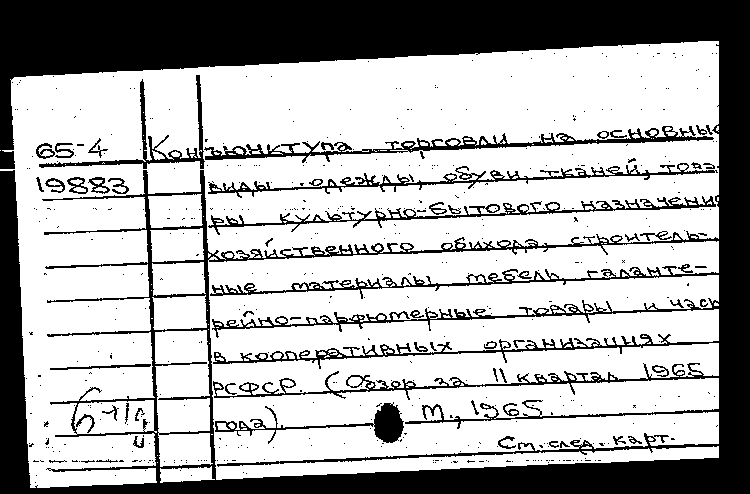 65-4 Конъюнктура торговли на основные
19883 виды одежды, обуви, тканей, това-
ры культурно-бытового назначения
хозяйственного обихода, строитель-
ные материалы, мебель, галанте-
рейно-парфюмерные товары и часы
в кооперативных организациях
РСФСР. (Обзор за II квартал 1965
года). М., 1965.
См. след. карт.